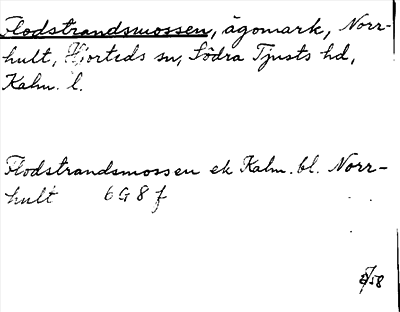 Flodstrandsmossen, ägomark, Norr-
hult, Hjorteds sn, Södra Tjusts hd,
Kalm. l.
Flodstrandsmossen ek Kalm. bl. Norr-
hult 6G8f
58